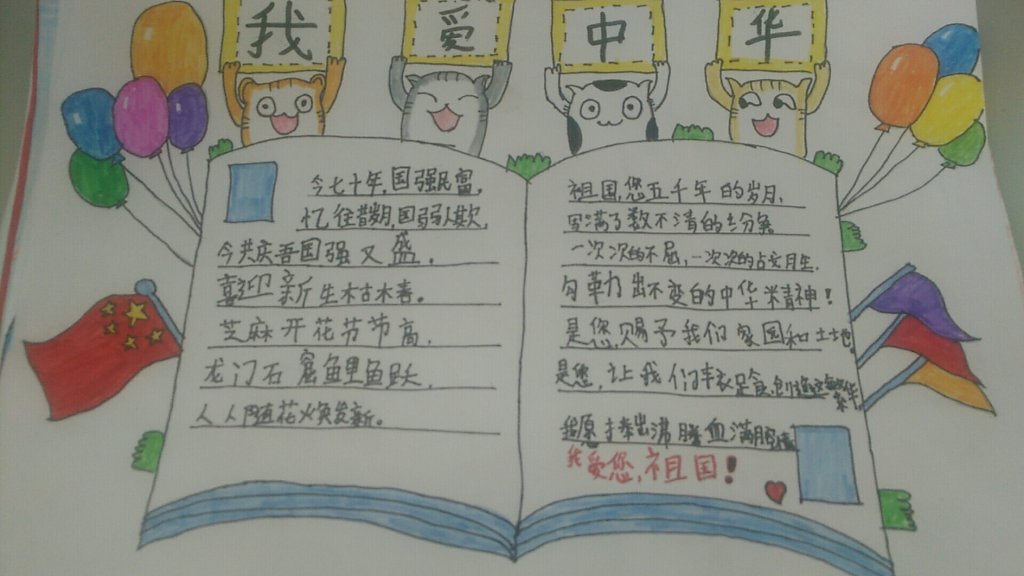 我爱中华
今七十年,国强民富,
忆往昔朝,国弱人欺,
今共庆吾国强又盛,
喜迎新生枯木春。
芝麻开花节节高,
龙门石窟鲤鱼跃,
人人随花火焕发新。
祖国,您五千年的岁月,
写满了数不清的
一次次的不屈,一次次的占
勾勒出不变的中华米精神!
是您,赐予我们家园和土地,
是您,让我们丰衣足食,创造
我愿捧出沸腾血满腔
我爱您,祖国!